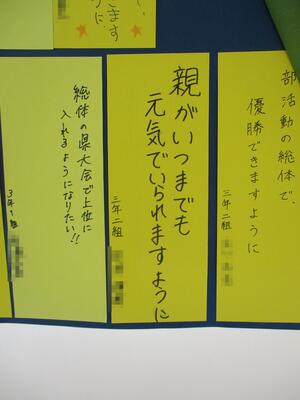 部活動の総体で、
優勝できますように
三年二組
親がいつまでも
元気でいられますように
三年二組
総体の県大会で上位に
入れるようになりたい!!
3年1組